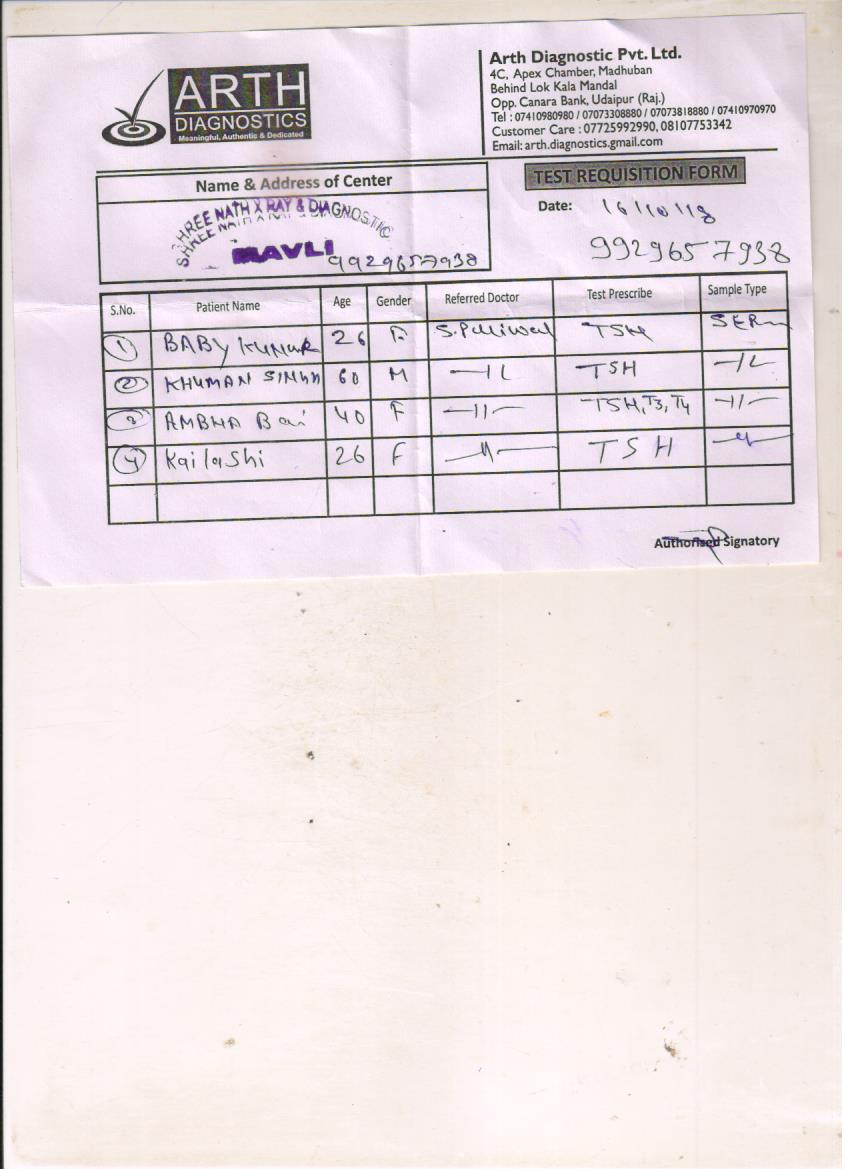 ARTH
DIAGNOSTICS
Meaningful, Authentic & Dedicated
Arth Diagnostic Pvt. Ltd.
4C, Apex Chamber, Madhuban
Behind Lok Kala Mandal
Opp. Canara Bank, Udaipur (Raj.)
Tel : 07410980980 / 07073308880 / 07073818880 / 07410970970
Customer Care : 07725992990, 08107753342
Email: arth.diagnostics.gmail.com
Name & Address of Center
SHREE NATH X RAY & DIAGNOSTIC
MAVLI
9929657938
TEST REQUISITION FORM
Date: 16/10/18
9929657938
S.No. Patient Name Age Gender Referred Doctor Test Prescribe Sample Type
1 BABY KUNUR 26 F. S. Palliwal TSH
2 KHUMAN SINGH 60 M —11— TSH —11—
3 AMBHA Bai 40 F —11— TSH, T3, T4 —11—
4 Kailashi 26 F —11— TSH —11—
Authorised Signatory